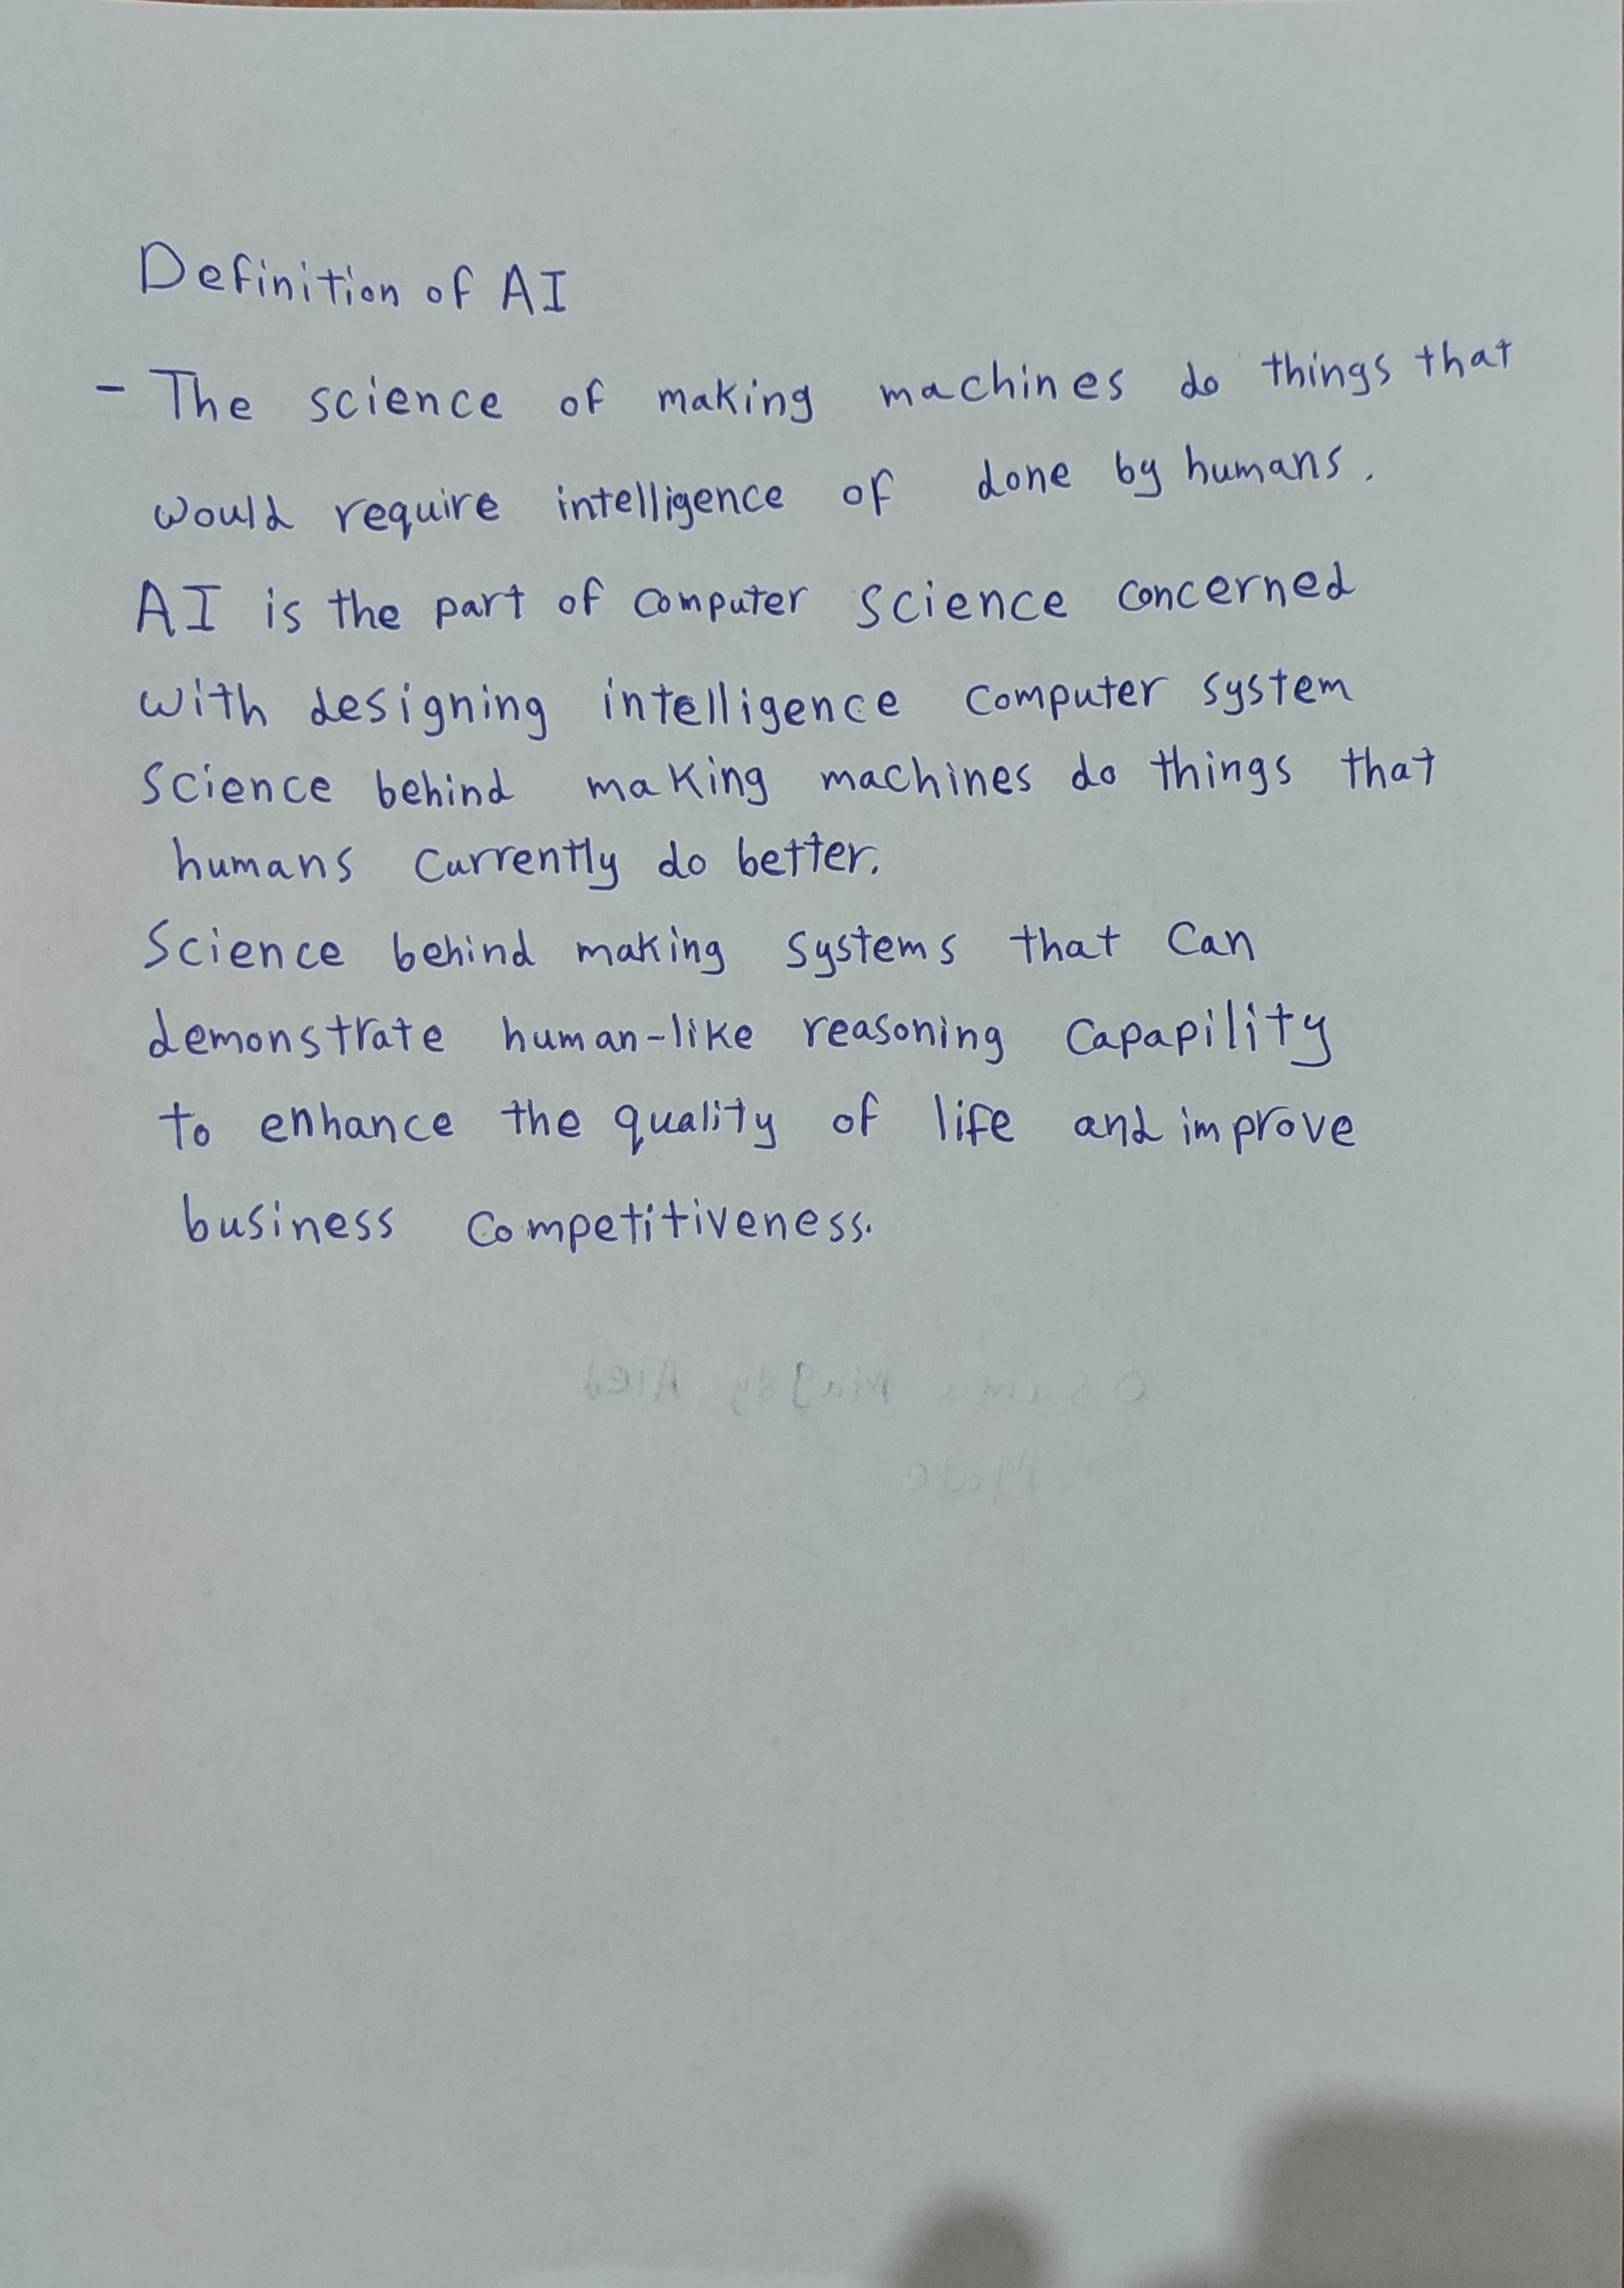 Definition of AI
- The science of making machines do things that
would require intelligence of done by humans.
AI is the part of computer science concerned
with designing intelligence computer system
Science behind making machines do things that
humans currently do better.
Science behind making systems that can
demonstrate human-like reasoning capapility
to enhance the quality of life and improve
business competitiveness.
Osama Magdy Aied
Male